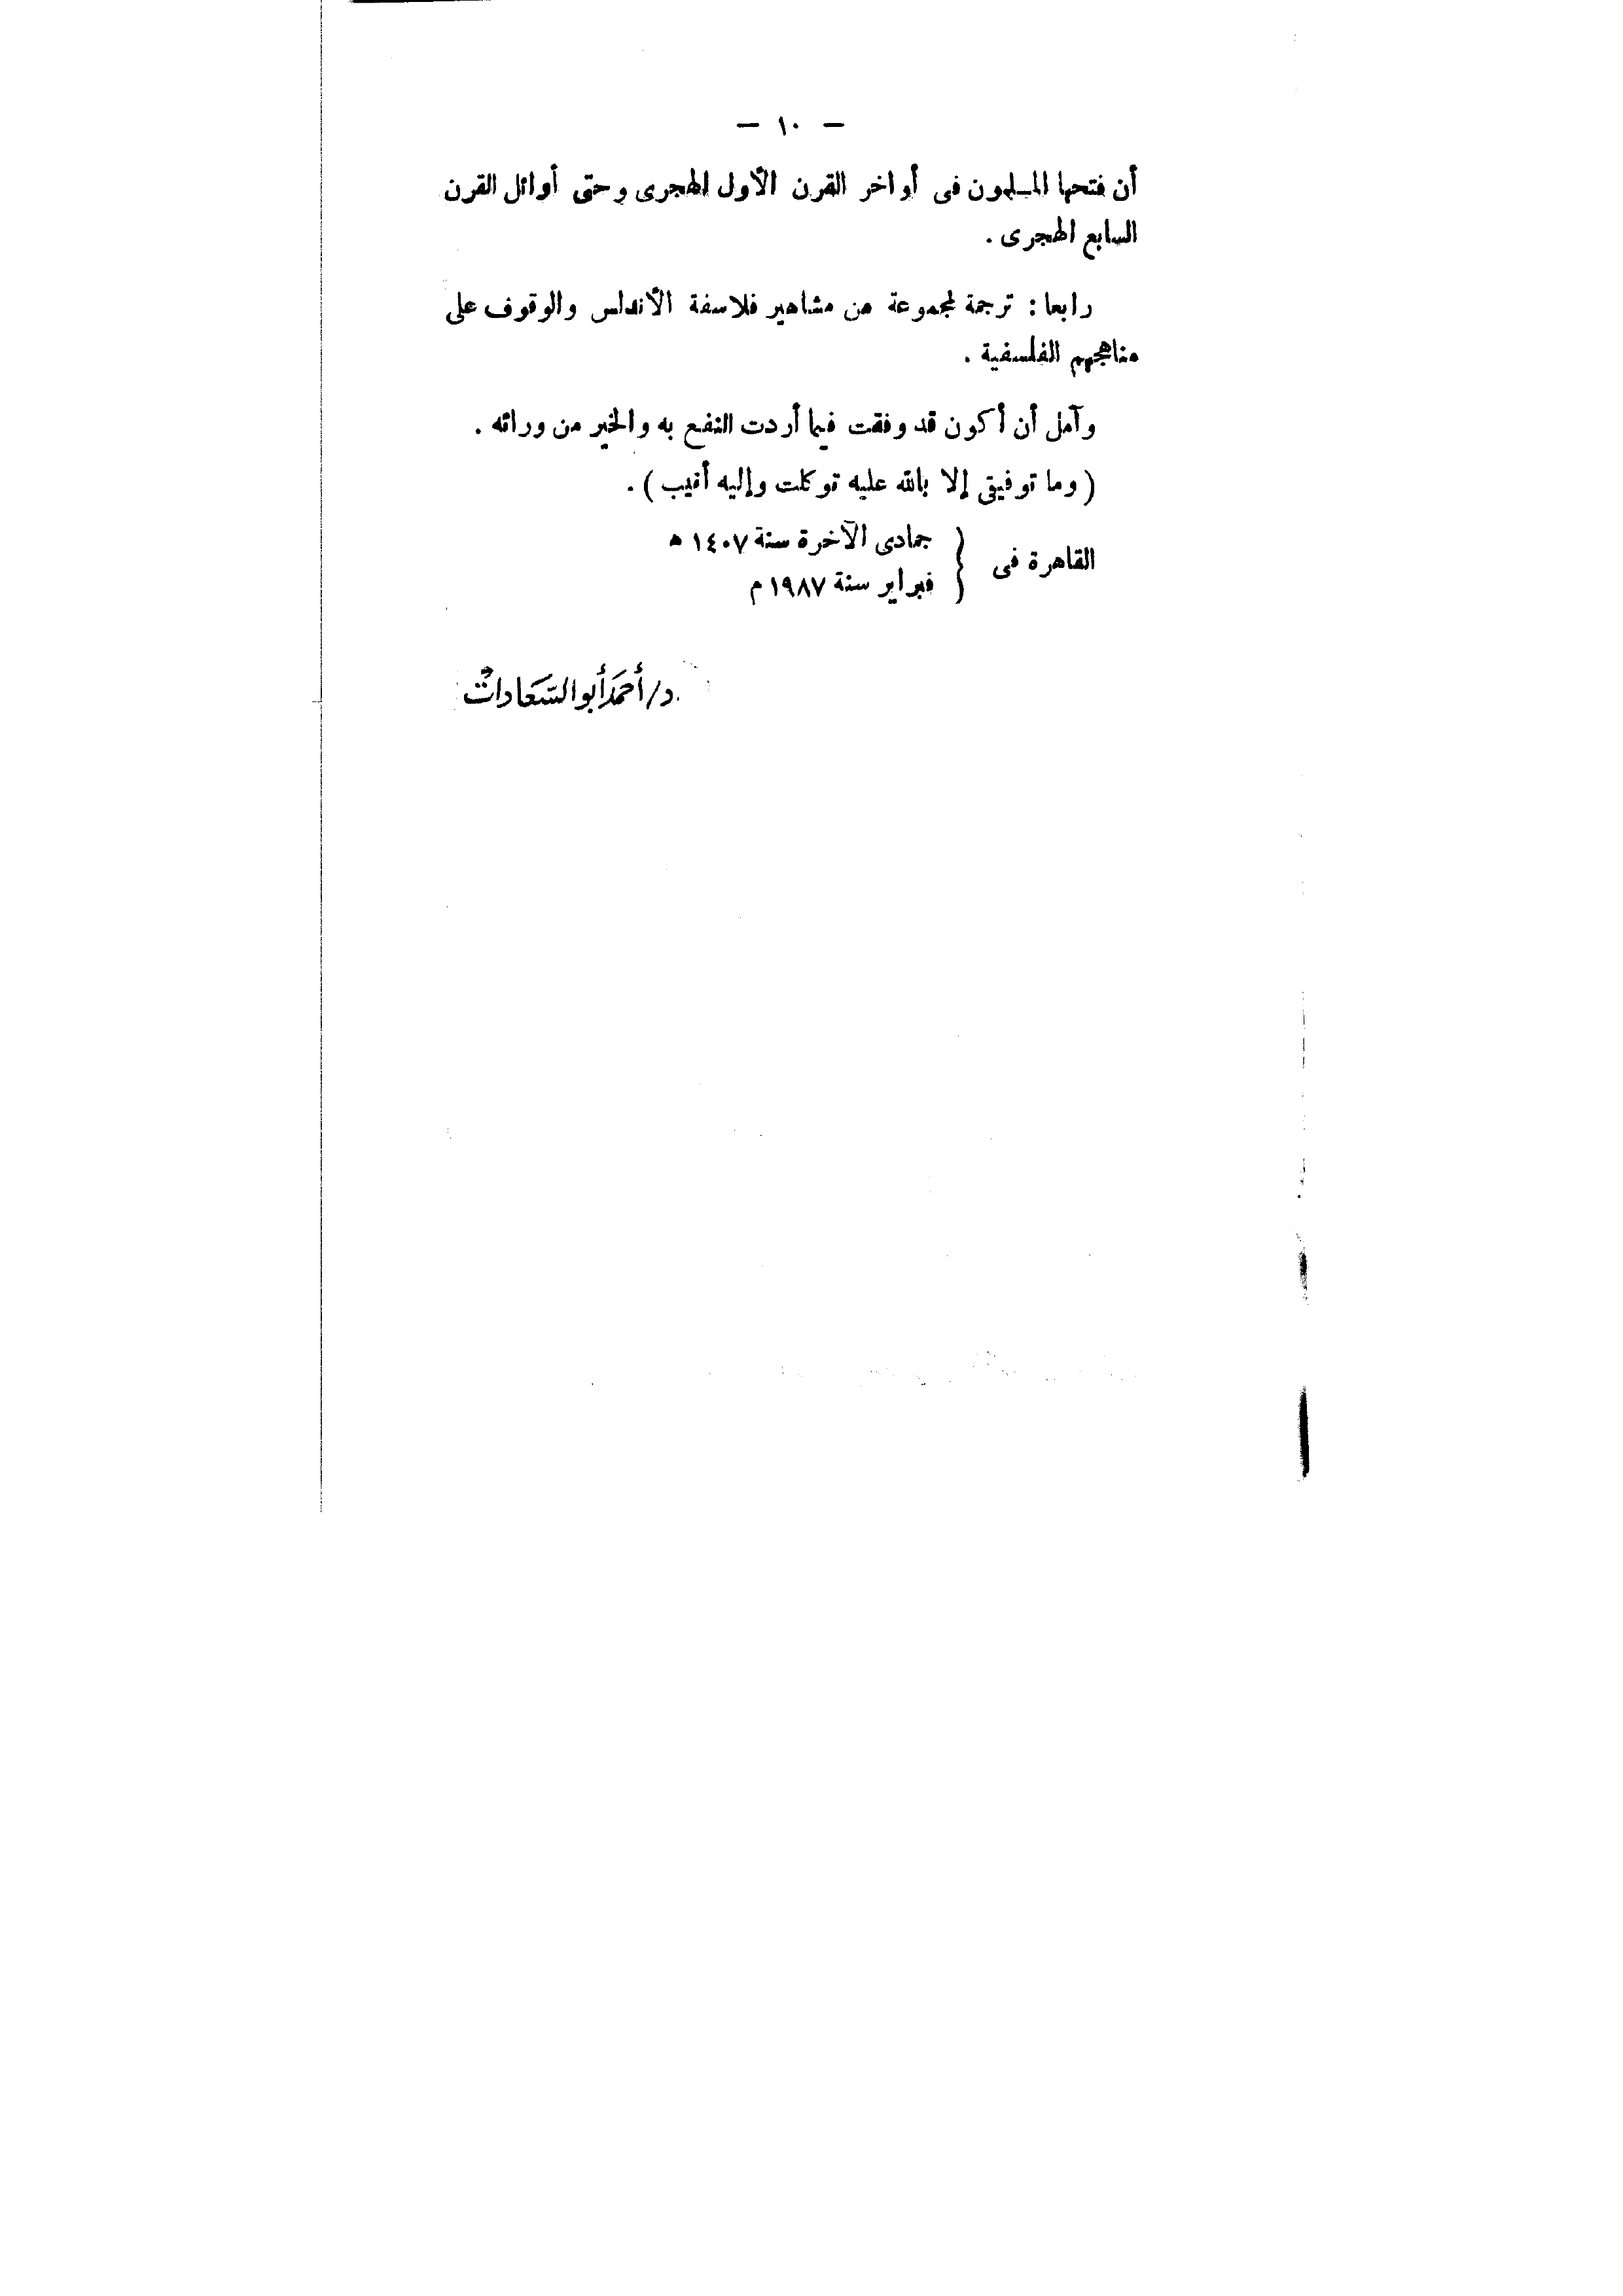 — ١٠ —
أن فتحها المسلمون فى أواخر القرن الأول الهجرى وحتى أوائل القرن
السابع الهجرى .
رابعا : ترجمة لمجموعة من مشاهير فلاسفة الأندلس والوقوف على
مناهجهم الفلسفية .
وآمل أن أكون قد وفقت فيما أردت النفع به والخير من ورائه .
( وما توفيقى إلا بالله عليه توكلت وإليه أنيب ) .
القاهرة فى { جمادى الآخرة سنة ١٤٠٧ ھ
فبراير سنة ١٩٨٧ م
د/أحمَد أبو السَّعَادات